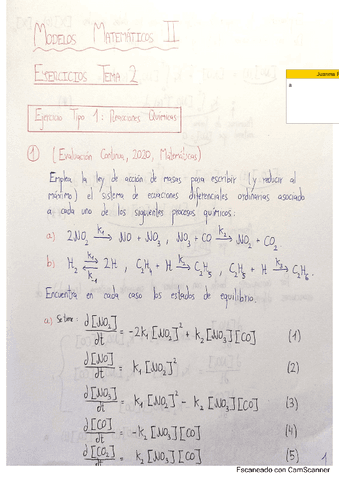 MODELOS MATEMÁTICOS II
EJERCICIOS TEMA 2
Juanma
a
Ejercicio Tipo 1: Reacciones Químicas
① (Evaluación Continua, 2020, Matemáticas)
Emplea la ley de acción de masas para escribir (y reducir al
máximo) el sistema de ecuaciones diferenciales ordinarias asociado
a cada uno de los siguientes procesos químicos:
a) 2NO₂ →k₁ NO + NO₃, NO₃ + CO →k₂ NO₂ + CO₂
b) H₂ ⇌k₁ k₋₁ 2H, C₂H₄ + H →k₂ C₂H₅, C₂H₅ + H →k₃ C₂H₆.
Encuentra en cada caso los estados de equilibrio.
a) Se tiene: d[NO₂]/dt = -2k₁[NO₂]² + k₂[NO₃][CO] (1)
d[NO]/dt = k₁[NO₂]² (2)
d[NO₃]/dt = k₁[NO₂]² - k₂[NO₃][CO] (3)
d[CO]/dt = -k₂[NO₃][CO] (4)
d[CO₂]/dt = k₂[NO₃][CO] (5)
1
Escaneado con CamScanner